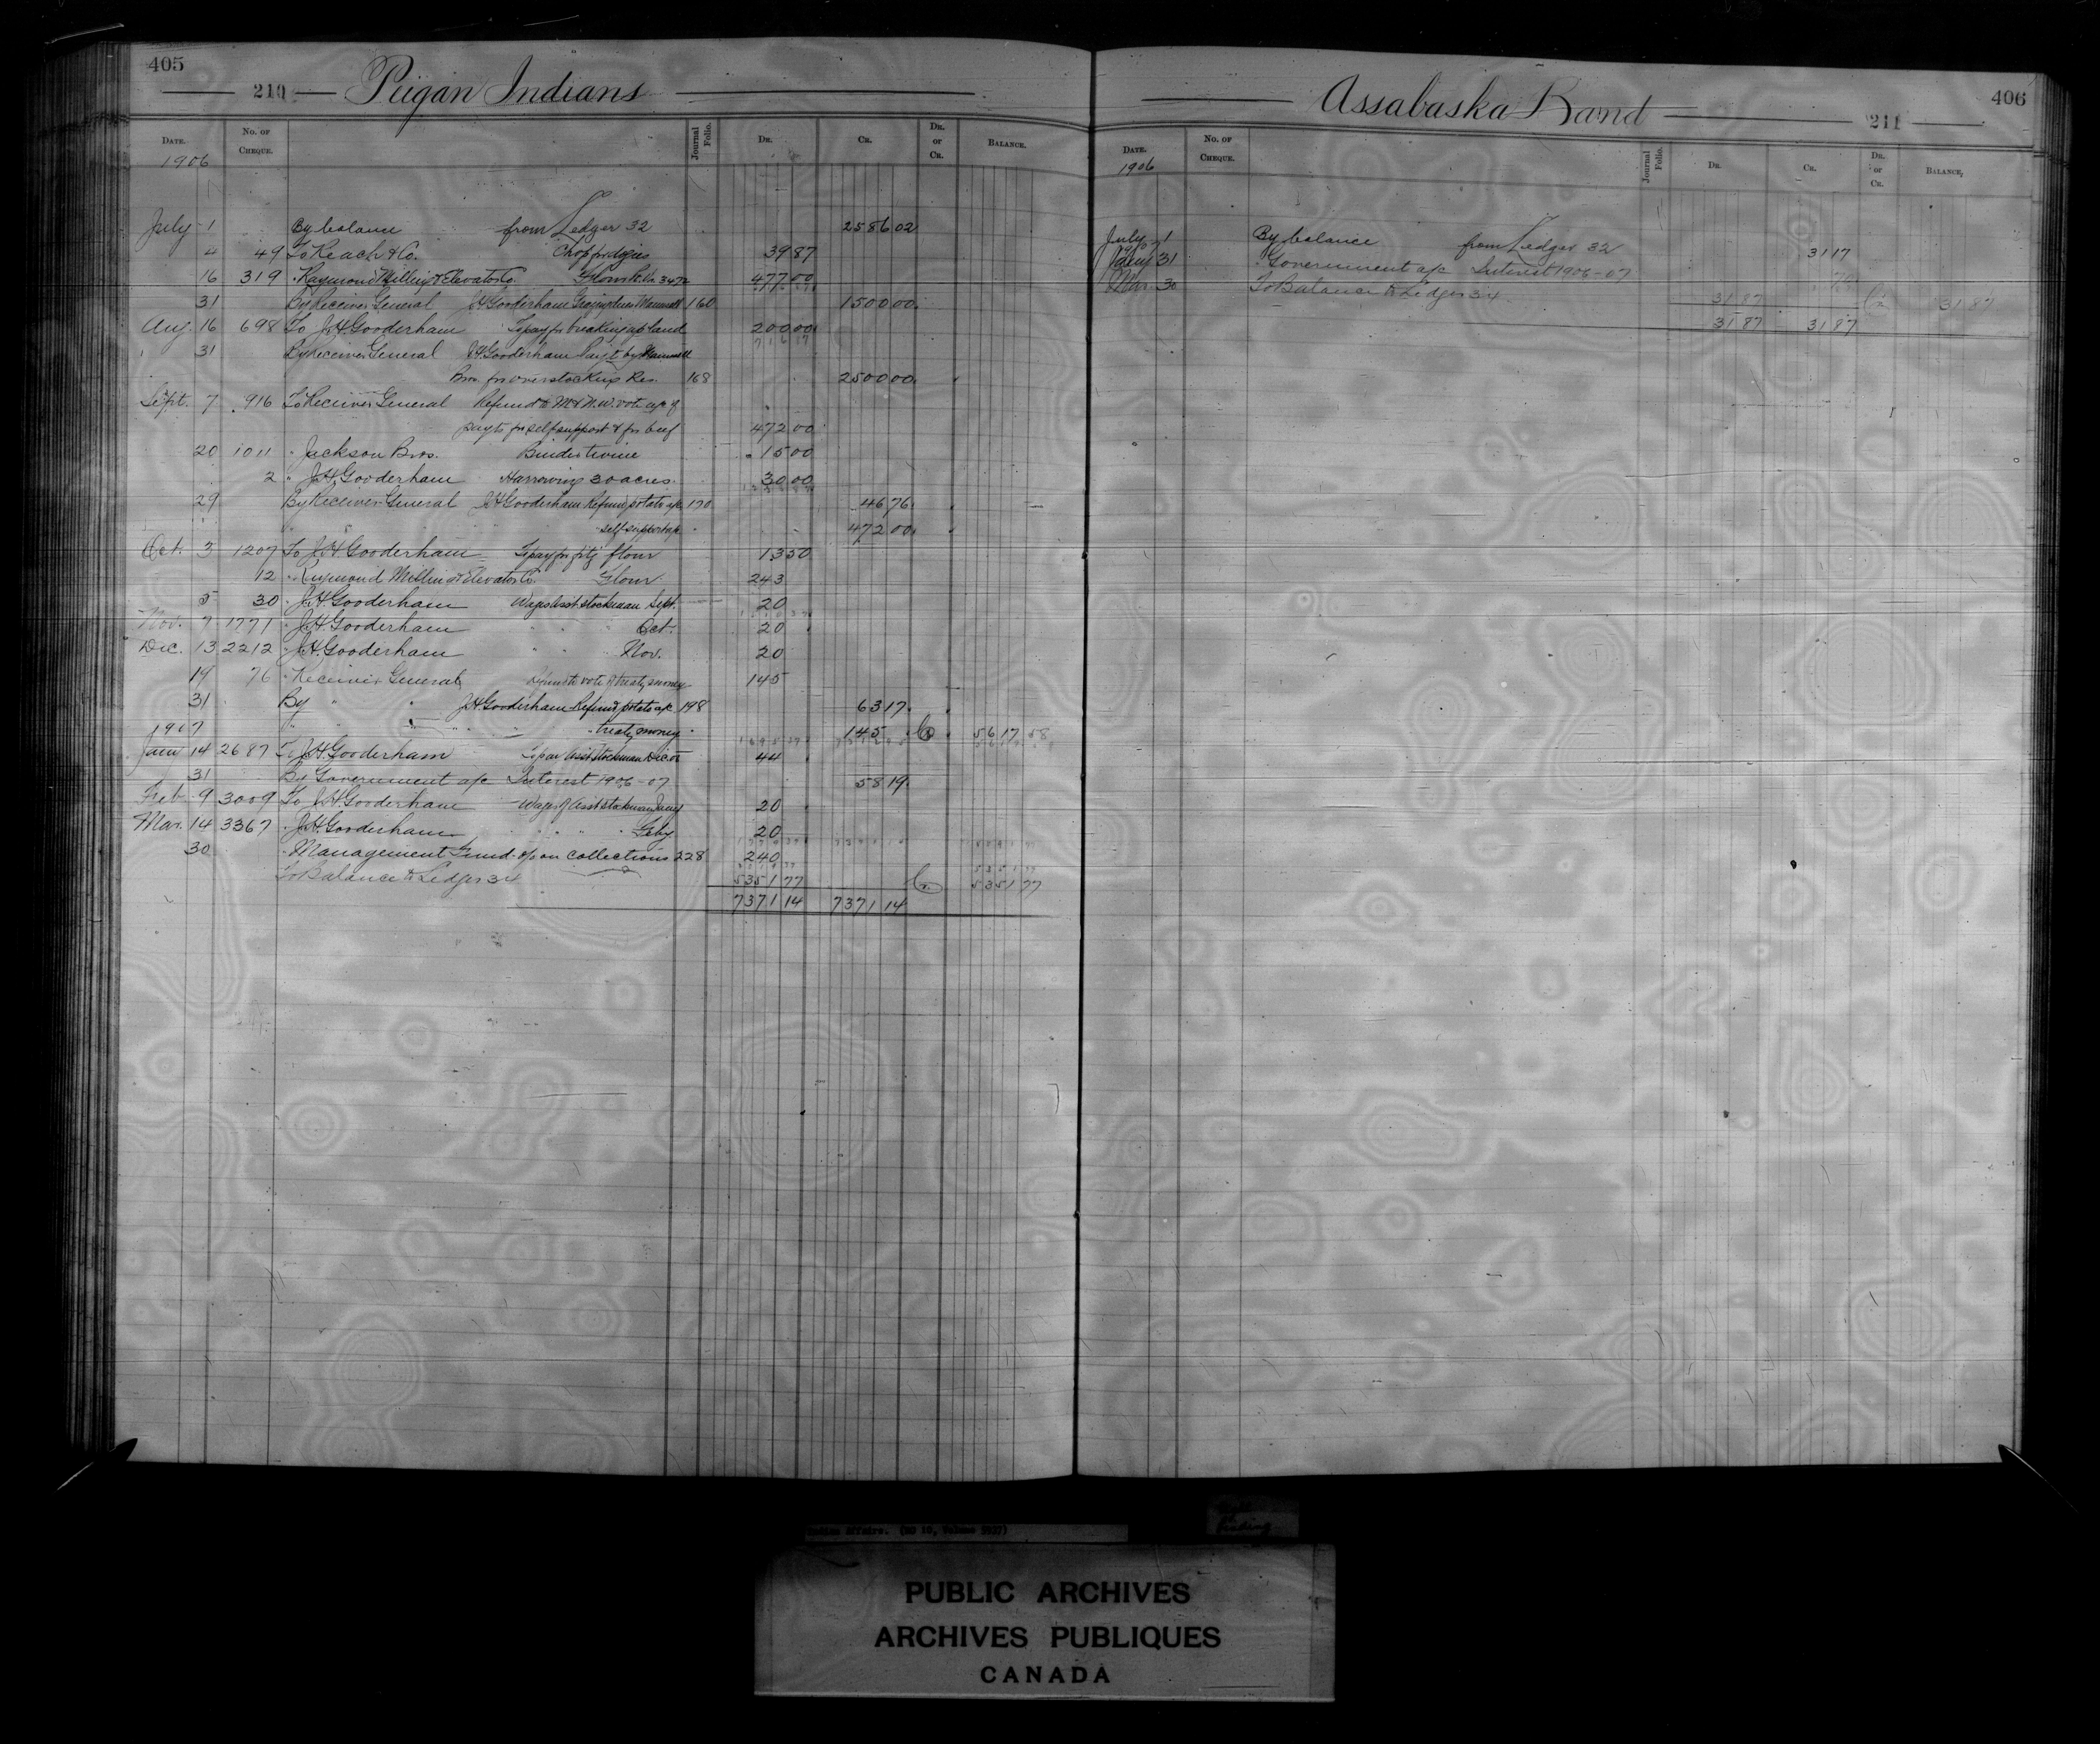 405
210 Peigan Indians
DATE. No. OF CHEQUE. Journal Folio. DR. CR. DR. or CR. BALANCE.
1906
July 1 By balance from Ledger 32 2586 02
4 49 To Keach & Co. 39 87
16 319 " Raymond Milling & Elevator Co. Flour 477 00
31 By Receiver General J.H. Gooderham 160 1500 00
Aug. 16 698 To J.H. Gooderham To pay for breaking up land 200 00
31 By Receiver General J.H. Gooderham Paid by
Bros. for overstocking Res. 168 2500 00
Sept. 7 916 To Receiver General Refund to M & N.W. vote a/c of
payts for self support & for beef 472 00
20 1011 " Jackson Bros. Binder twine 15 00
2 " J.H. Gooderham Harrowing 30 acres 30 00
29 By Receiver General J.H. Gooderham Refund potato a/c 170 46 76
" " " self support a/c " 472 00
Oct. 3 1207 To J.H. Gooderham To pay for flour 13 50
12 " Raymond Milling & Elevator Co. Flour 243
5 30 " J.H. Gooderham Wages Asst. stockman Sept. 20
Nov. 7 1771 " J.H. Gooderham " " " Oct. 20
Dec. 13 2212 " J.H. Gooderham " " Nov. 20
19 76 " Receiver General Refund to vote of treaty money 145
31 By " " J.H. Gooderham Refund potato a/c 198 63 17
1907 " " " " treaty money " 145 Cr 5617 58
Jany 14 2687 To J.H. Gooderham To pay Asst. Stockman Dec 44
31 By Government a/c Interest 1906-07 58 19
Feb. 9 3009 To J.H. Gooderham Wages of Asst stockman Jany 20
Mar. 14 3367 " J.H. Gooderham " " " " Feby 20
30 " Management Fund on collections 228 240
To Balance to Ledger 34 5351 77 Cr 5351 77
7371 14 7371 14
Assabaska Band 406
211
DATE. No. OF CHEQUE. Journal Folio. DR. CR. DR. or CR. BALANCE.
1906
July 1 By balance from Ledger 32 31 17
1907
Jany 31 " Government a/c Interest 1906-07 70
Mar. 30 To Balance to Ledger 34 31 87 Cr 31 87
31 87 31 87
Indian Affairs. (RG 10, Volume 5937)
Binding
PUBLIC ARCHIVES
ARCHIVES PUBLIQUES
CANADA